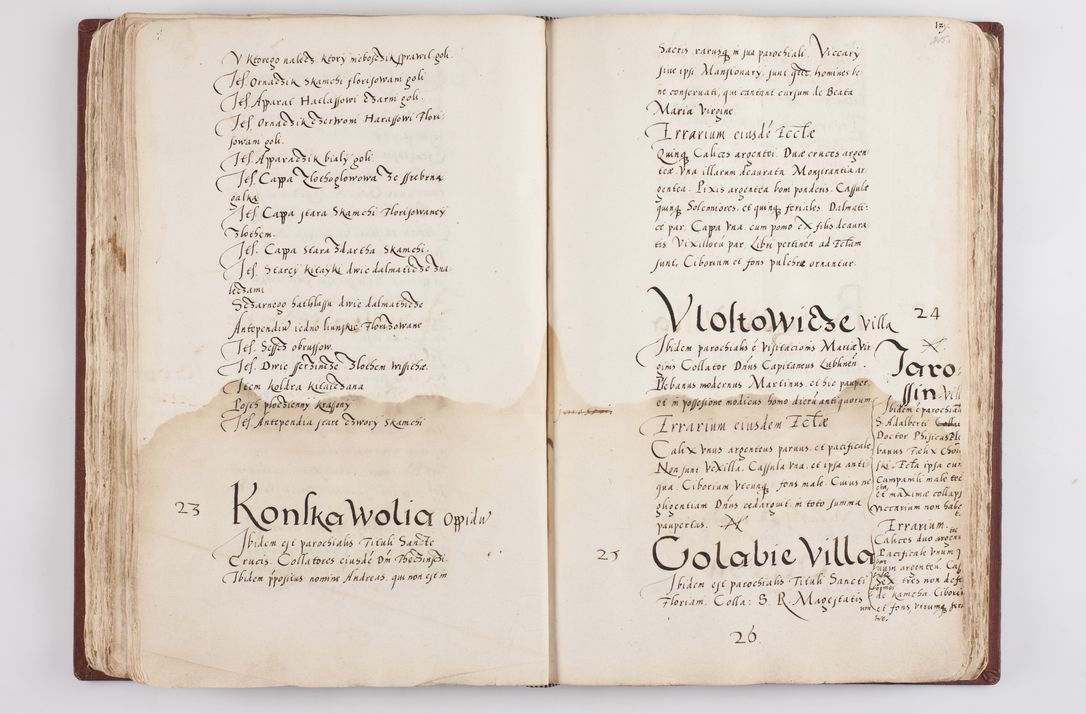 V ktorego naledz ktory niebosczik sprawil goli
Jt(est) Ornaczik Skamchi florisowam goli
Jtes. Apparat Hatlassowi Czarni goli.
Jtes. Ornaczik czerwoni Harassowi Flori
sowam goli.
Jtes. Apparaczik bialy goli.
Jtes. Cappa Zlothoglowowa ze srebrna
galka
Jtes. Cappa stara Skamchi Florisowaney
Zlothem.
Jtes. Cappa stara zdartha skamchi.
Jtes. Starey kitayki dwie dalmatice
Sczarnego hathlassu dwie dalmathicze
Antependiu iedno Florizowane
Jtes. obrussow.
Jtes. Dwie Zlothem wssithe.
Item koldra kitaiczana
Jtes Antependia stare skamchi
23
Konska Wolia Oppidu
Ibidem est parochialis Tituli Sancte
Crucis. Collatores eiusdē Dn̄i Thęczinsczi.
Ibidem p̄positus nomine Andreas, qui non est in
129.
205.
Sacris rarusq̧ in sua parochiali. Viccary
siue ipsi Mansionary, sunt homines be
ne conseruati, qui cantant cursum de Beata
Maria Virgine.
Errarium eiusdē Eccłæ
Quinq̧ Calices argentei. Duæ cruces argen
teæ Vna illarum deaurata Monstrantia ar
gentea. Pixis argentea boni ponderis. Cassulæ
quinq̧ Solenniores, et quinq̧ feriales. Dalmati:
cæ par. Cappa vna, cum pomo ex filis deaura
tis Vixillorū par. Libri pertinen ad Eccłam
sunt, Ciborium et fons pulchre ornantur.
Vlostowicze villa 24
Ibidem parochialis ē Visitacionis Mariæ Vir
ginis Collator Dn̄us Capitaneus Lublinen̄.
Plebanus modernus Martinus, et hic pauper
et in possesione modicus homo dierū antiquorum
Errarium eiusdem Eccłæ
Calix vnus argenteus paruus, et pacificale,
Non sunt vexilla, Cassula vna, et ipsa anti
qua. Ciborium vtcunq̧, fons male. Cuius ne
gligentiam Dn̄us redarguit, in toto summa
paupertas.
Jaro
ssin Vill
Ibidem ē parochiali
S. Adalberti
Doctor Phisicus Ple
banus Fælix Choin
ski. Eccła ipsa cum
Campanili male tec
ta, et maxime collaps
Vicenrium non habe
t.
Errarium.
Calices duo argen
te
Pacificale vnum
par
vnum argenteū. Cas
sex tres non defe
de kamcha. Cibori
um et fons, vtrumq̧
25
Golabie Villa
Ibidem est parochialis Tituli Sancti
Floriani. Colla: S. R. Magestatis
26